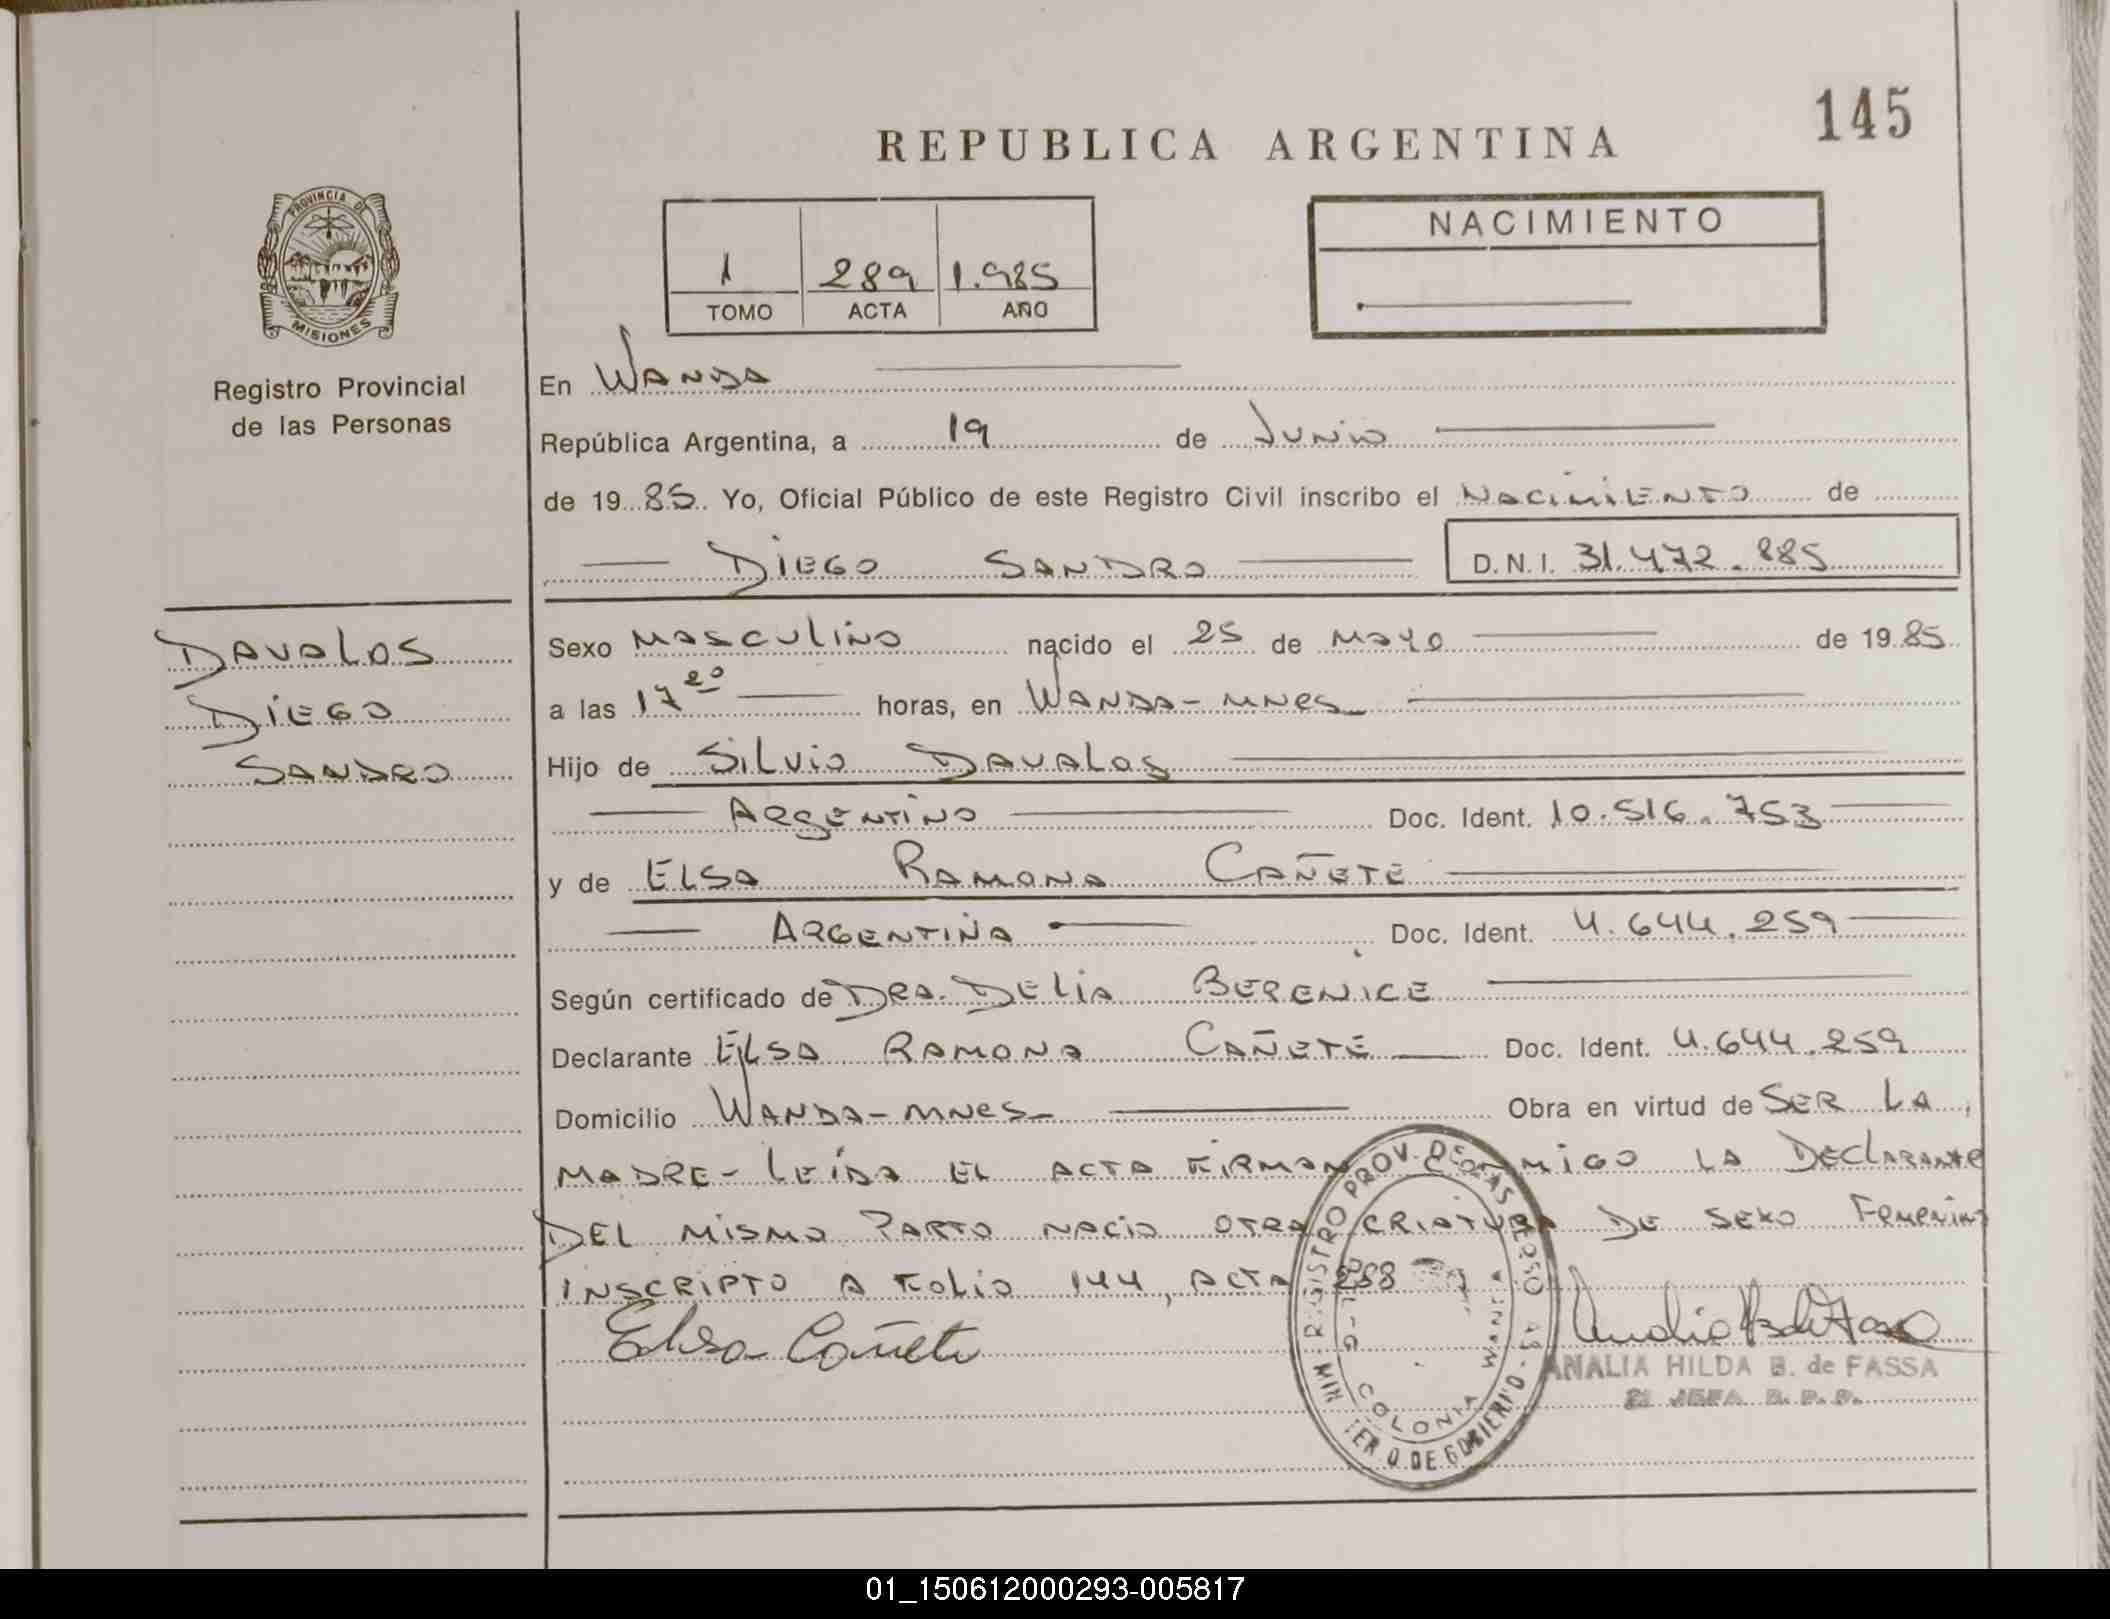 145
REPUBLICA ARGENTINA
PROVINCIA DE
MISIONES
Registro Provincial
de las Personas
NACIMIENTO
1 289 1.985
TOMO ACTA AÑO
En WANDA
República Argentina, a 19 de JUNIO
de 19 85 Yo, Oficial Público de este Registro Civil inscribo el NACIMIENTO de
DIEGO SANDRO D.N.I. 31.472.885
DAVALOS
DIEGO
SANDRO
Sexo MASCULINO nacido el 25 de MAYO de 19 85
a las 17 20 horas, en WANDA-MNES
Hijo de SILVIO DAVALOS
ARGENTINO Doc. Ident. 10.516.753
y de ELSA RAMONA CAÑETE
ARGENTINA Doc. Ident. 4.644.259
Según certificado de DRA. DELIA BERENICE
Declarante ELSA RAMONA CAÑETE Doc. Ident. 4.644.259
Domicilio WANDA-MNES Obra en virtud de SER LA
MADRE- LEÍDA EL ACTA FIRMAN CONMIGO LA DECLARANTE
DEL MISMO PARTO NACIO OTRA CRIATURA DE SEXO FEMENINO
INSCRIPTO A FOLIO 144, ACTA 288
Elsa Cañete
REGISTRO PROV. DE LAS PERSONAS
COLONIA WANDA
MINISTERIO DE GOBIERNO
ANALIA HILDA B. de FASSA
JEFA R. P. P.
01_150612000293-005817